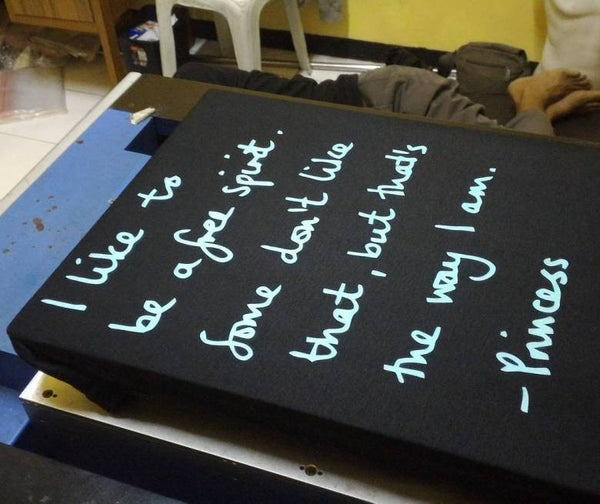 I like to
be a free spirit.
Some don't like
that, but that's
the way I am.
-Princess